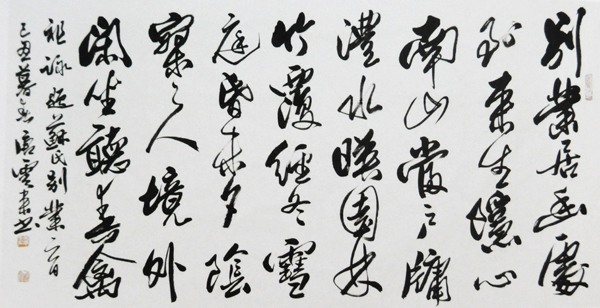 别業居幽處
到来生隱心
南山當户牖
澧水映園林
竹覆經冬雪
庭昏未夕陰
寥々人境外
閑坐聽春禽
祖詠題蘇氏别業一首
己丑暮春唐雲来书